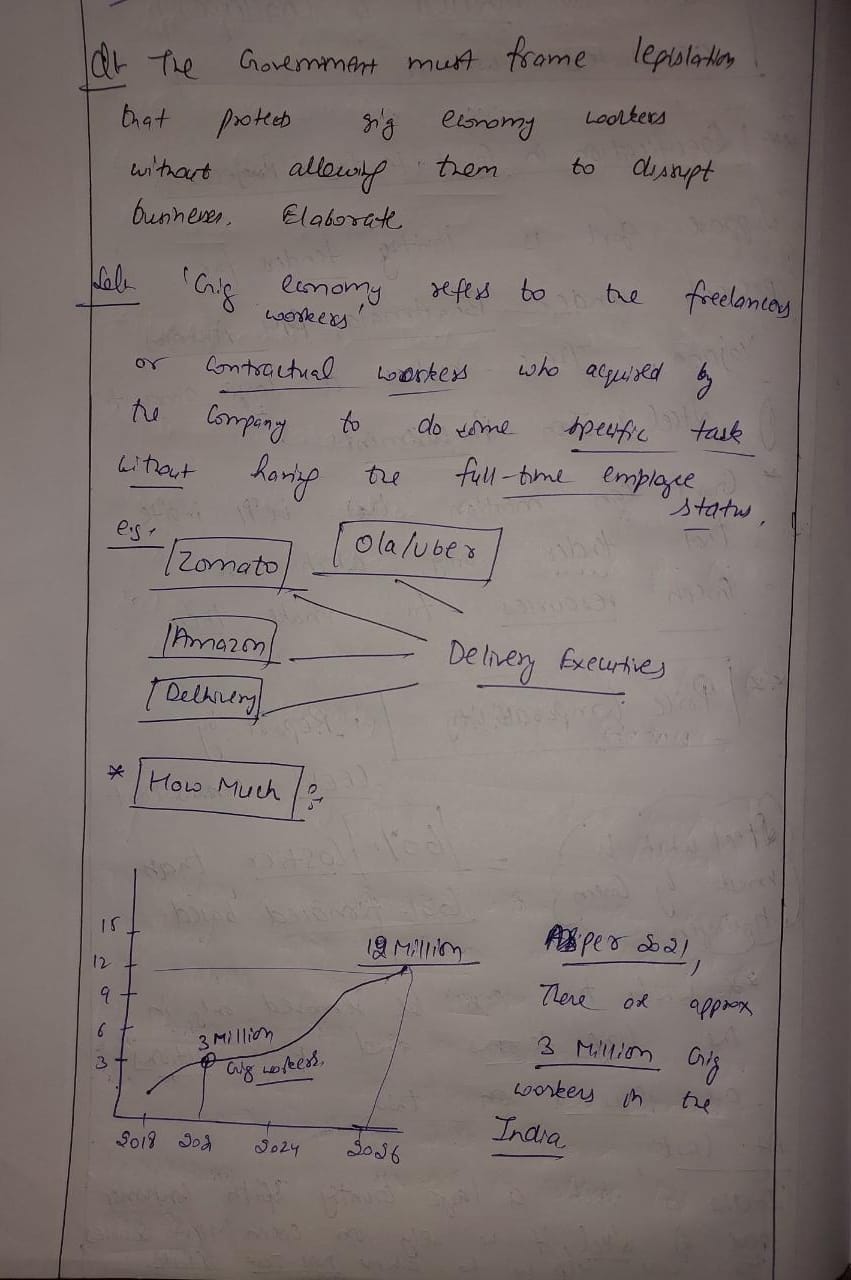 Q1 The Government must frame legislation
that protects gig economy workers
without allowing them to disrupt
businesses. Elaborate
Sol: 'Gig economy refers to the freelancers
workers'
or Contractual workers who acquired by
the Company to do some specific task
without having the full-time employee
status.
e.g.
Zomato Ola/Uber
Amazon
Delivery Executives
Delhivery
* How Much ?
15
12 12 Million
9
6
3
3 Million
Gig workers.
2018 2021 2024 2026
As per 2021,
There are approx
3 Million Gig
workers in the
India